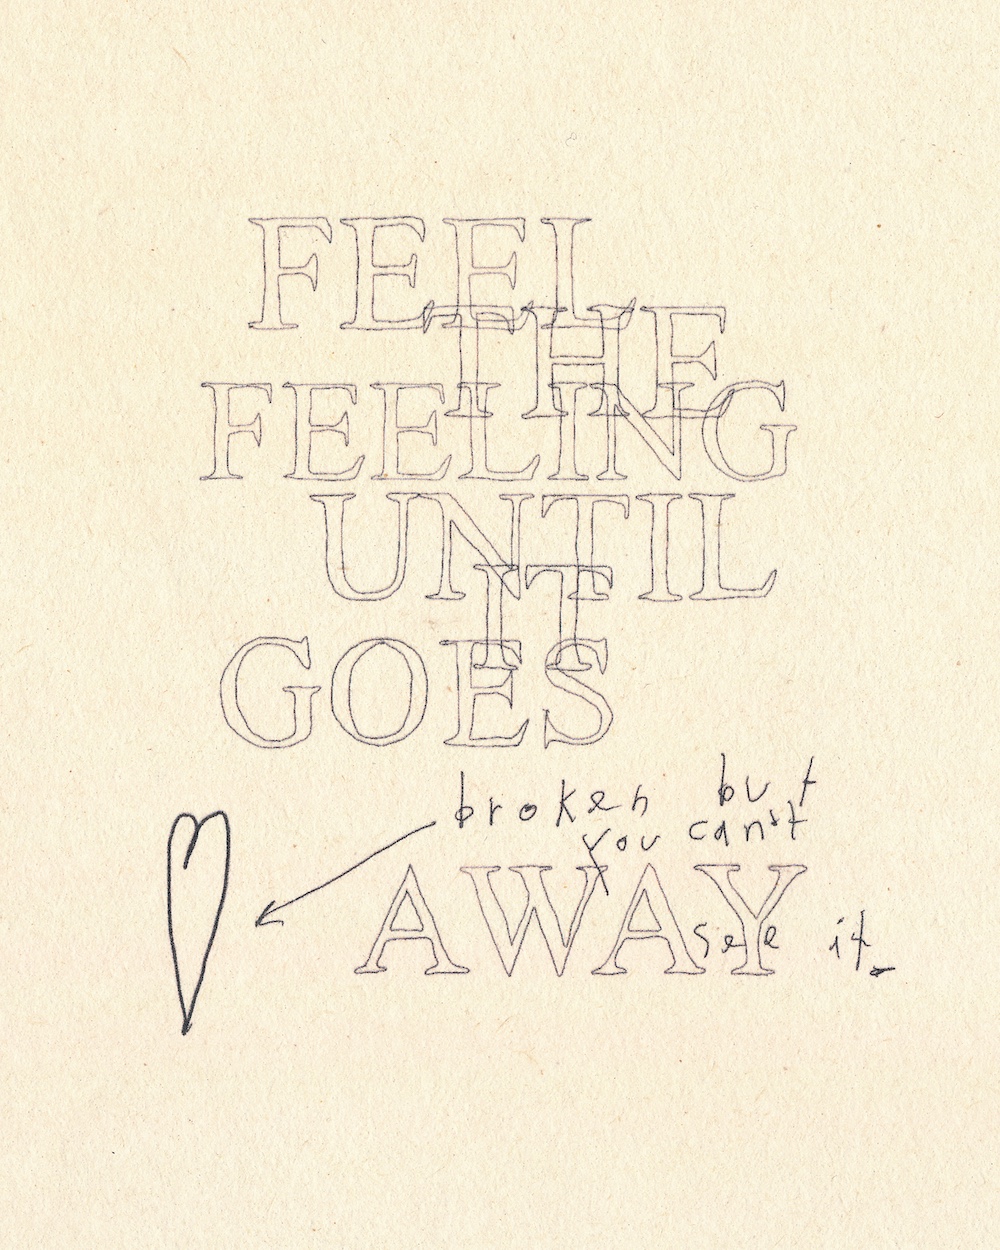 FEEL
THE
FEELING
UNTIL
IT
GOES
broken but
you can't
AWAY
see it